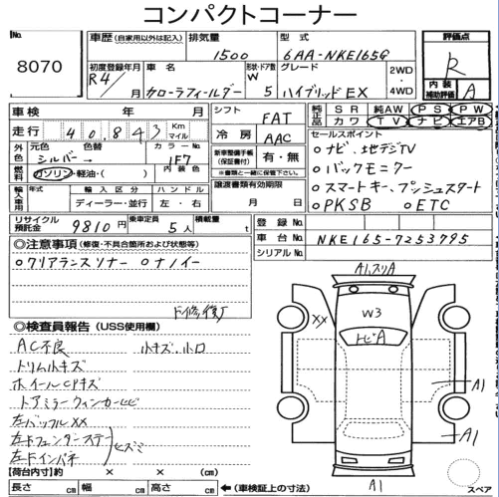 コンパクトコーナー
8070
車歴 (自家用以外は記入) 排気量 1500 型式 6AA-NKE165G
評価点 R
初度登録年月 R4/ 車名 カローラフィールダー 形状・ドア数 W 5 グレード ハイブリッドEX 2WD・4WD
内装補助評価 A
車検 年 月
シフト FAT
純正品 SR 純AW PS PW カワ TV ナビ エアB
走行 40,843 Km マイル
冷房 AAC
セールスポイント
外色 元色 シルバー→ 色替 カラーNo. 1F7
新車整備手帳(保証書付) 有・無
※書類と一緒に保管下さい。
○ナビ、地デジTV
○バックモニター
燃料 ガソリン・軽油・( ) 内装色
○スマートキー、プッシュスタート
輸入車用 年式 輸入区分 ディーラー・並行 ハンドル 左・右
譲渡書類有効期限 月 日
○PKSB ○ETC
リサイクル預託金 9810円 乗車定員 5人 積載量 t
登録No.
車台No. NKE165-7253795
シリアルNo.
◎注意事項 (修復・不具合箇所および状態等)
○クリアランスソナー ○ナノイー
下修復
◎検査員報告 (USS使用欄)
AC不良 小キズ、小凹
トリム小キズ
ホイールCPキズ
ドアミラーウィンカーヒビ
左バッフルXX
左Fフェンダーステー
左Fインパネ
ヒズミ
【荷台内寸】 × × (cm)
長さ cm 幅 cm 高さ cm ←(車検証上の寸法)
A1,スリA
XX
W3
トビA
A1
A1
A1
スペア